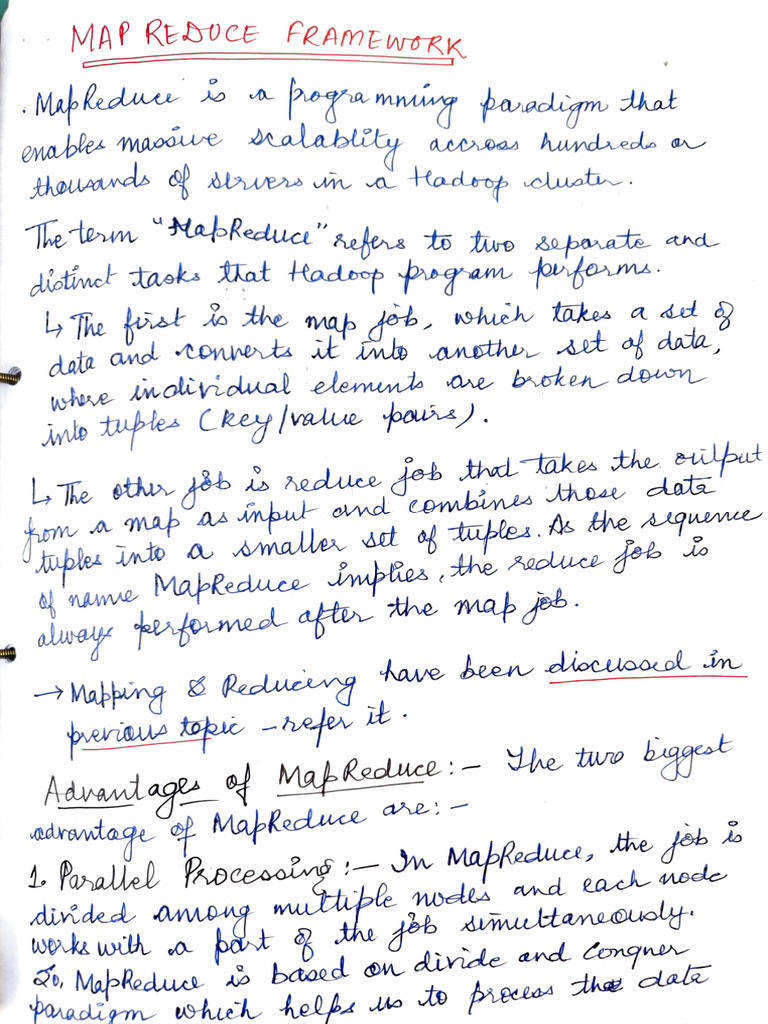 MAP REDUCE FRAMEWORK
. MapReduce is a programming paradigm that
enables massive scalablity accross hundreds or
thousands of servers in a Hadoop cluster.
The term "MapReduce" refers to two separate and
distinct tasks that Hadoop program performs.
↳ The first is the map job, which takes a set of
data and converts it into another set of data,
where individual elements are broken down
into tuples (key/value pairs).
↳ The other job is reduce job that takes the output
from a map as input and combines those data
tuples into a smaller set of tuples. As the sequence
of name MapReduce implies, the reduce job is
always performed after the map job.
→ Mapping & Reducing have been discussed in
previous topic - refer it.
Advantages of MapReduce:- The two biggest
advantage of MapReduce are:-
1. Parallel Processing:- In MapReduce, the job is
divided among multiple nodes and each node
works with a part of the job simultaneously.
So, MapReduce is based on divide and Conquer
paradigm which helps us to process the data